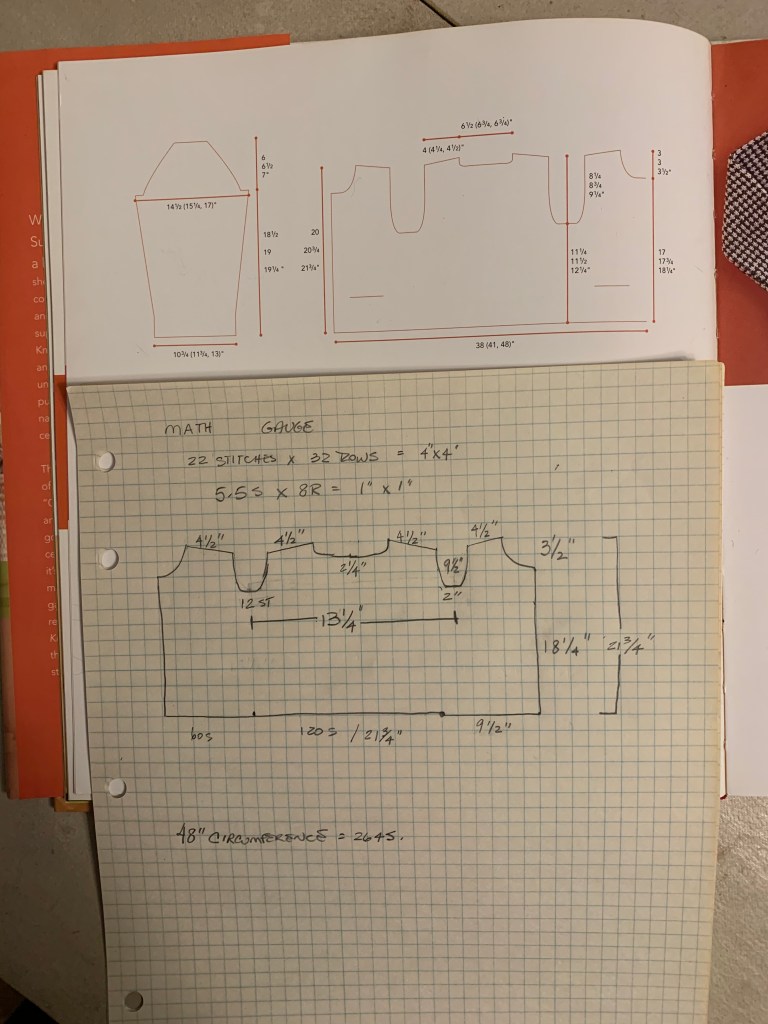 6½ (6¾, 6¾)"
4 (4¼, 4½)"
6
6½
7"
14½ (15¼, 17)"
18½
19
19¼"
10¾ (11¾, 13)"
20
20¾
21¾"
8¼
8¾
9¼"
3
3
3½"
11¼
11½
12¼"
17
17¾
18¼"
38 (41, 48)"
W
Su
a l
MATH GAUGE
22 STITCHES x 32 ROWS = 4"x4"
5.5S x 8R = 1" x 1"
4½" 4½" 4½" 4½"
3½"
2¼" 9½"
12 ST 2"
13¼"
18¼" 21¾"
60S 120S / 21¾" 9½"
48" CIRCUMFERENCE = 264S.